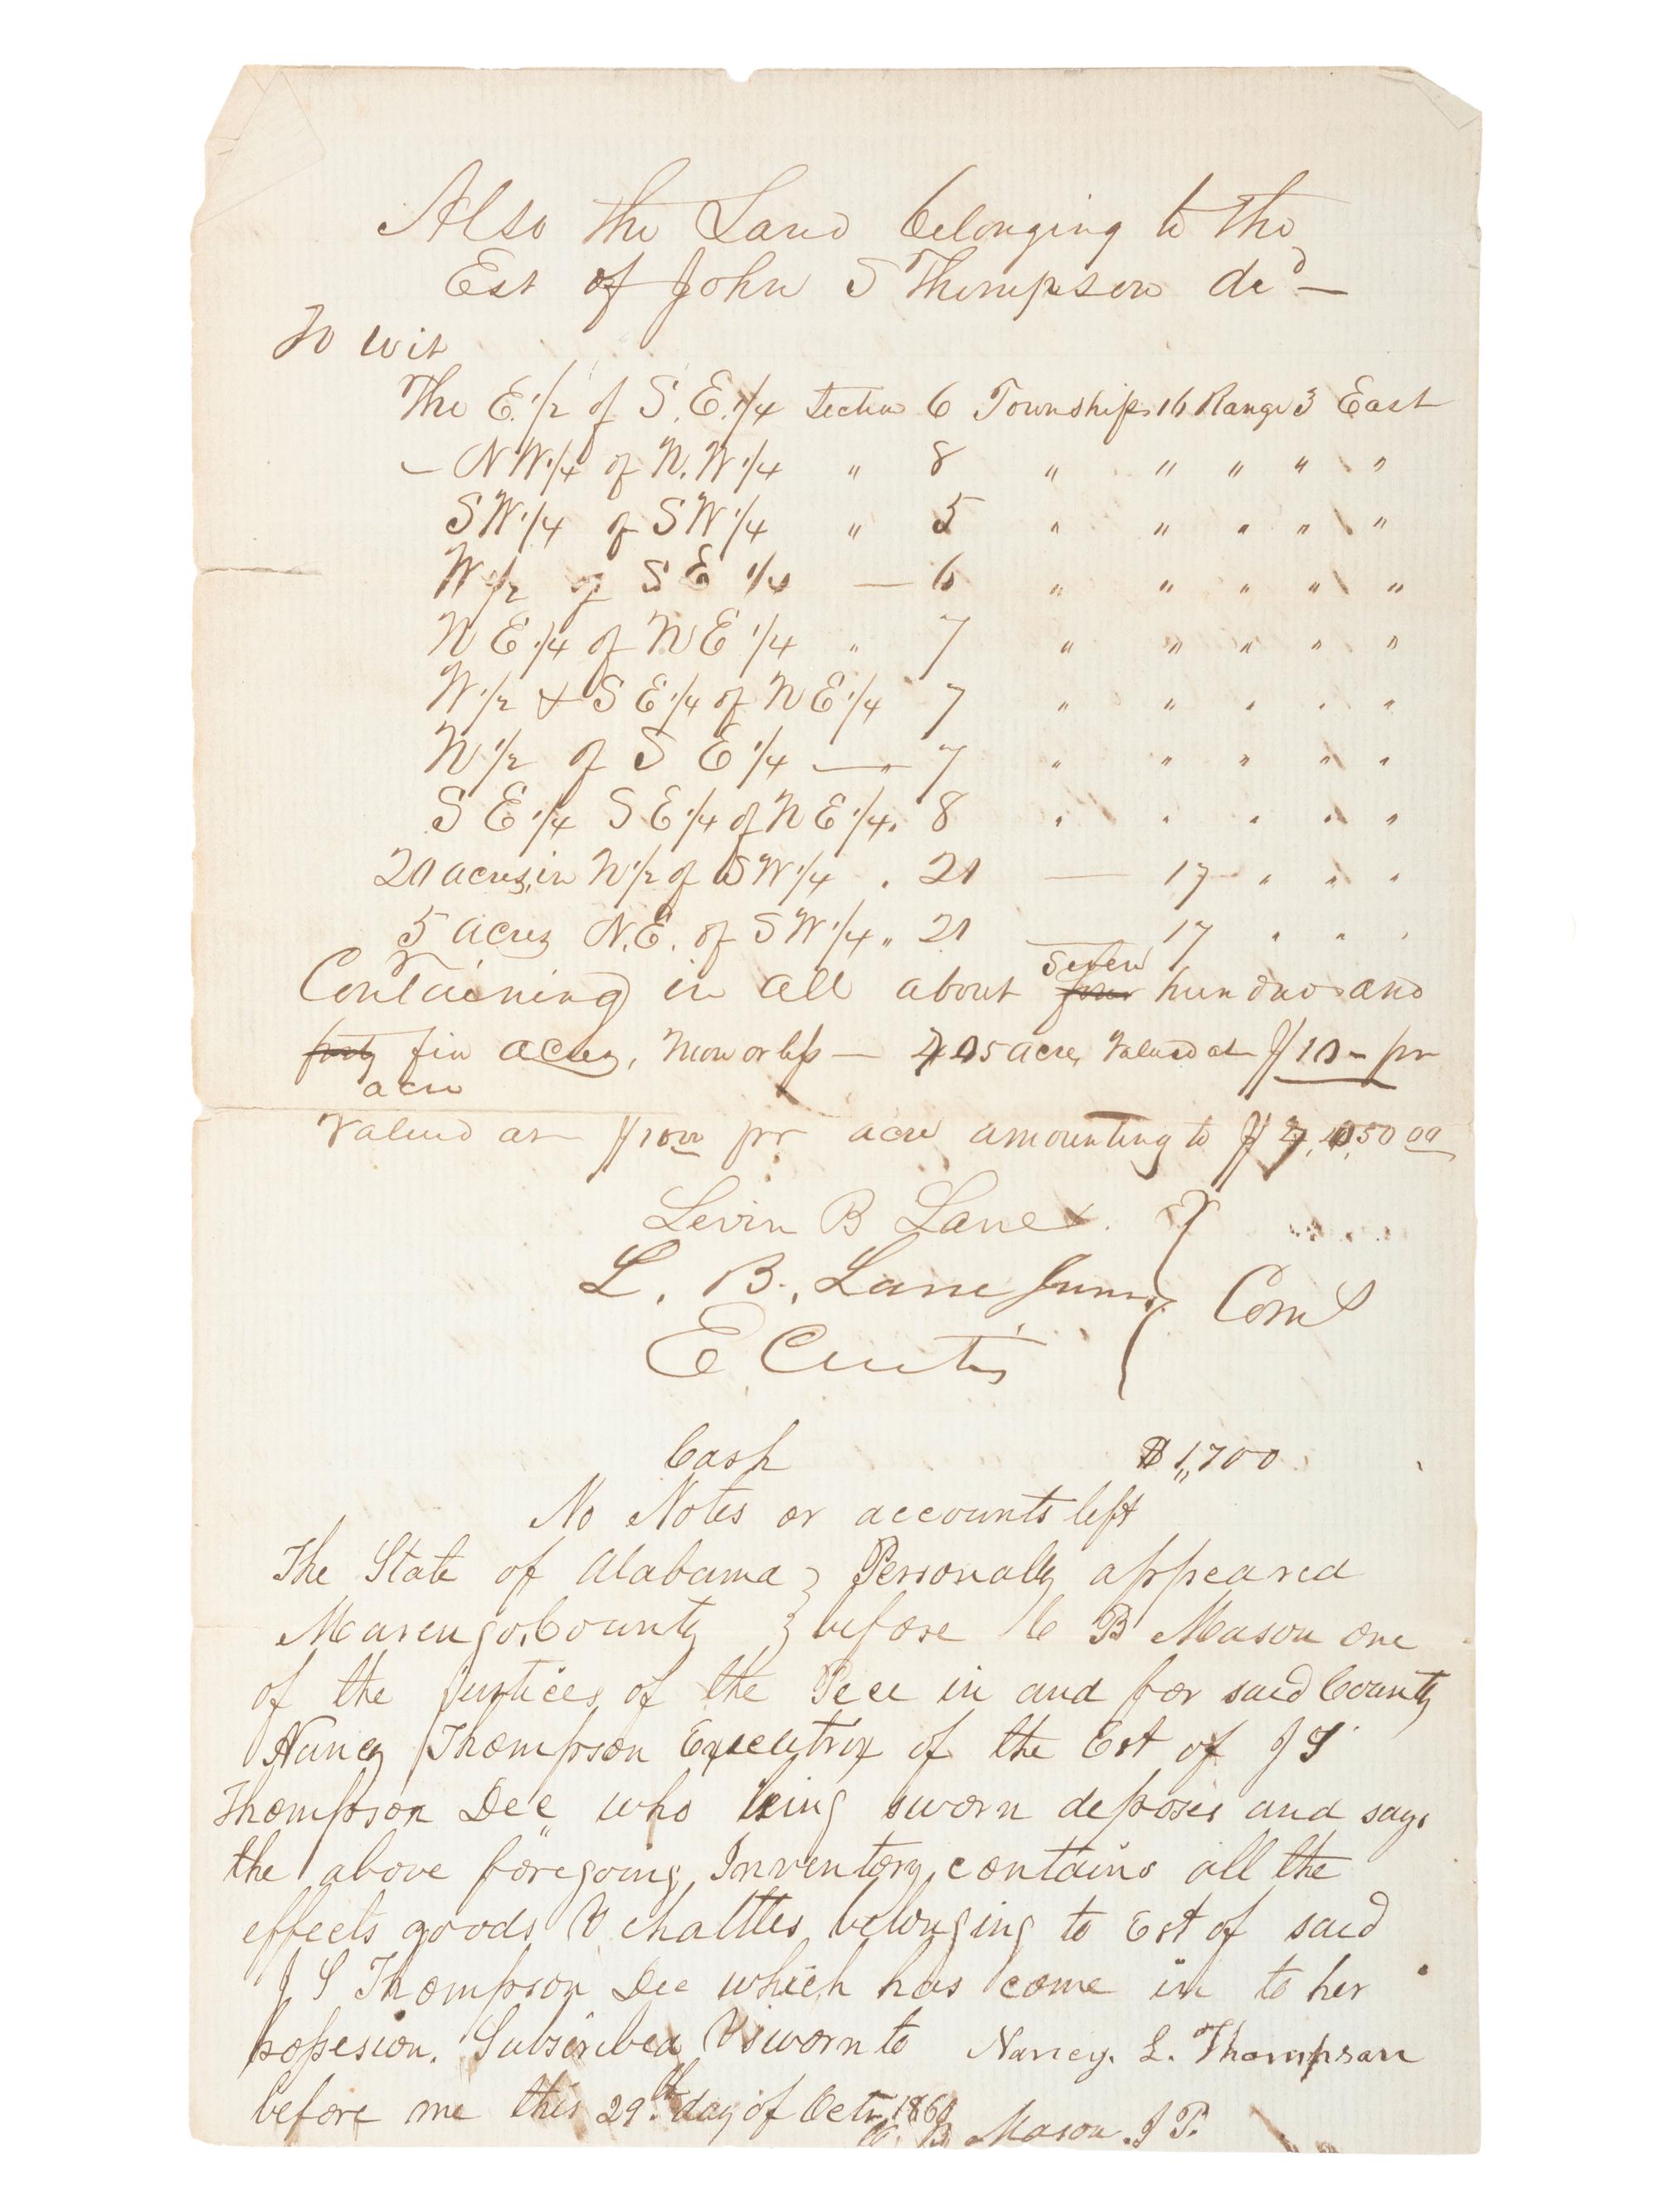 Also the Land belonging to the
Est of John S Thompson decd —
To wit
The E. 1/2 of S. E. 1/4 Section 6 Township 16 Range 3 East
— N W 1/4 of N. W 1/4 " 8 " " " " "
S W 1/4 of S W 1/4 " 5 " " " " "
W 1/2 of S E 1/4 — 6 " " " " "
N E 1/4 of N E 1/4 " 7 " " " " "
W 1/2 & S E 1/4 of N E 1/4 " 7 " " " " "
N 1/2 of S E 1/4 — " 7 " " " " "
S E 1/4 S E 1/4 of N E 1/4 " 8 " " " " "
20 acres, in N 1/2 of SW 1/4 " 21 — 17 " " "
5 acres N. E. of S W 1/4 " 21 — 17 " " "
seven
Containing in all about four hundred and
forty five acres, more or less — 405 acres valued at $10 — pr
acre
Valued at $10 00 pr acre amounting to $ 7,050 00
Levin B Lane
L. B. Lane Junr
E Curtis
Coms
Cash $ 1,700
No Notes or accounts left
The State of Alabama } Personally appeared
Marengo County } before C B Mason one
of the justices of the Pece in and for said County
Nancy Thompson Executrix of the Est of J S
Thompson Dec who being sworn deposes and says
the above foregoing Inventory contains all the
effects goods & chattles belonging to Est of said
J S Thompson Dec which has come in to her
possesion. Subscribed & sworn to Nancy. L. Thompson
before me this 29th day of Octr 1860
C B Mason J P.